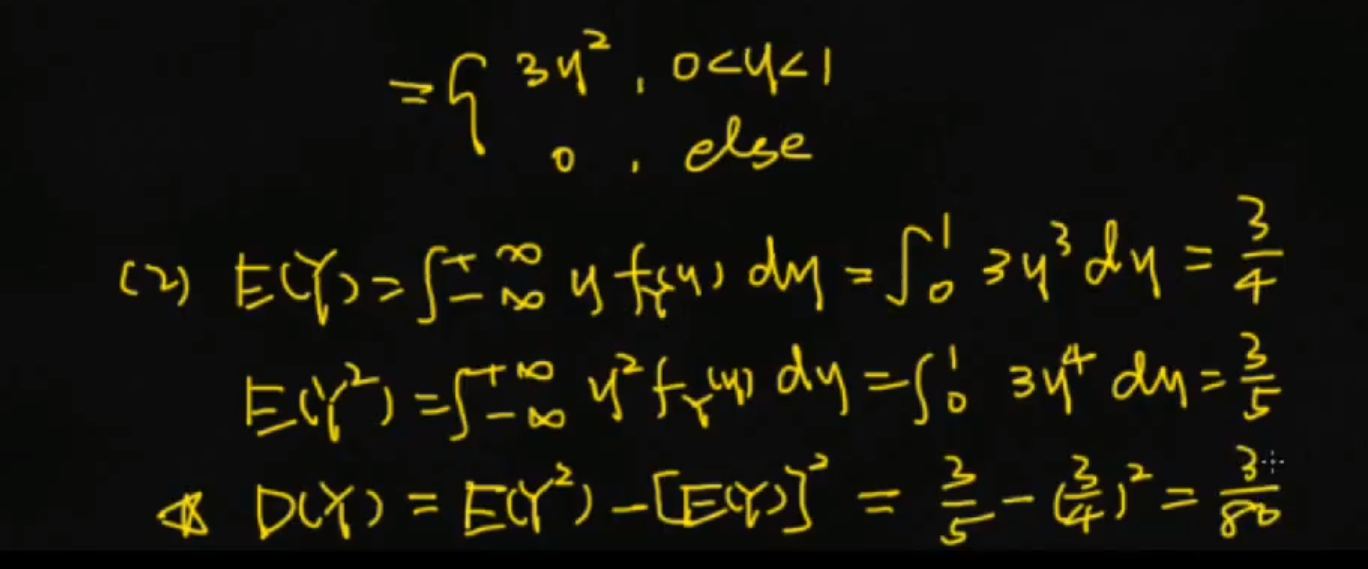 = { 3y², 0<y<1
0, else
(2) E(Y) = ∫_{-∞}^{+∞} y f_Y(y) dy = ∫_0^1 3y³ dy = 3/4
E(Y²) = ∫_{-∞}^{+∞} y² f_Y(y) dy = ∫_0^1 3y⁴ dy = 3/5
D(Y) = E(Y²) - [E(Y)]² = 3/5 - (3/4)² = 3/80